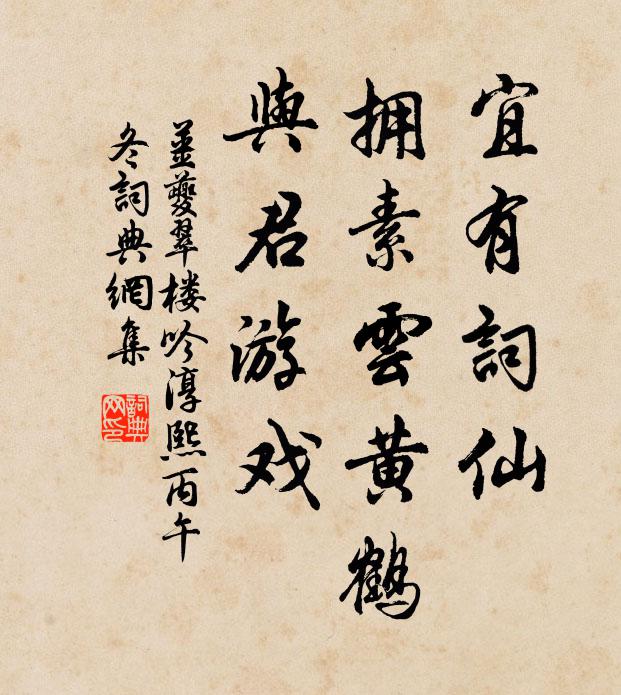 宜有詞仙
拥素雲黄鶴
與君游戏
姜夔翠楼吟淳熙丙午
冬詞典網集
詞典
网印